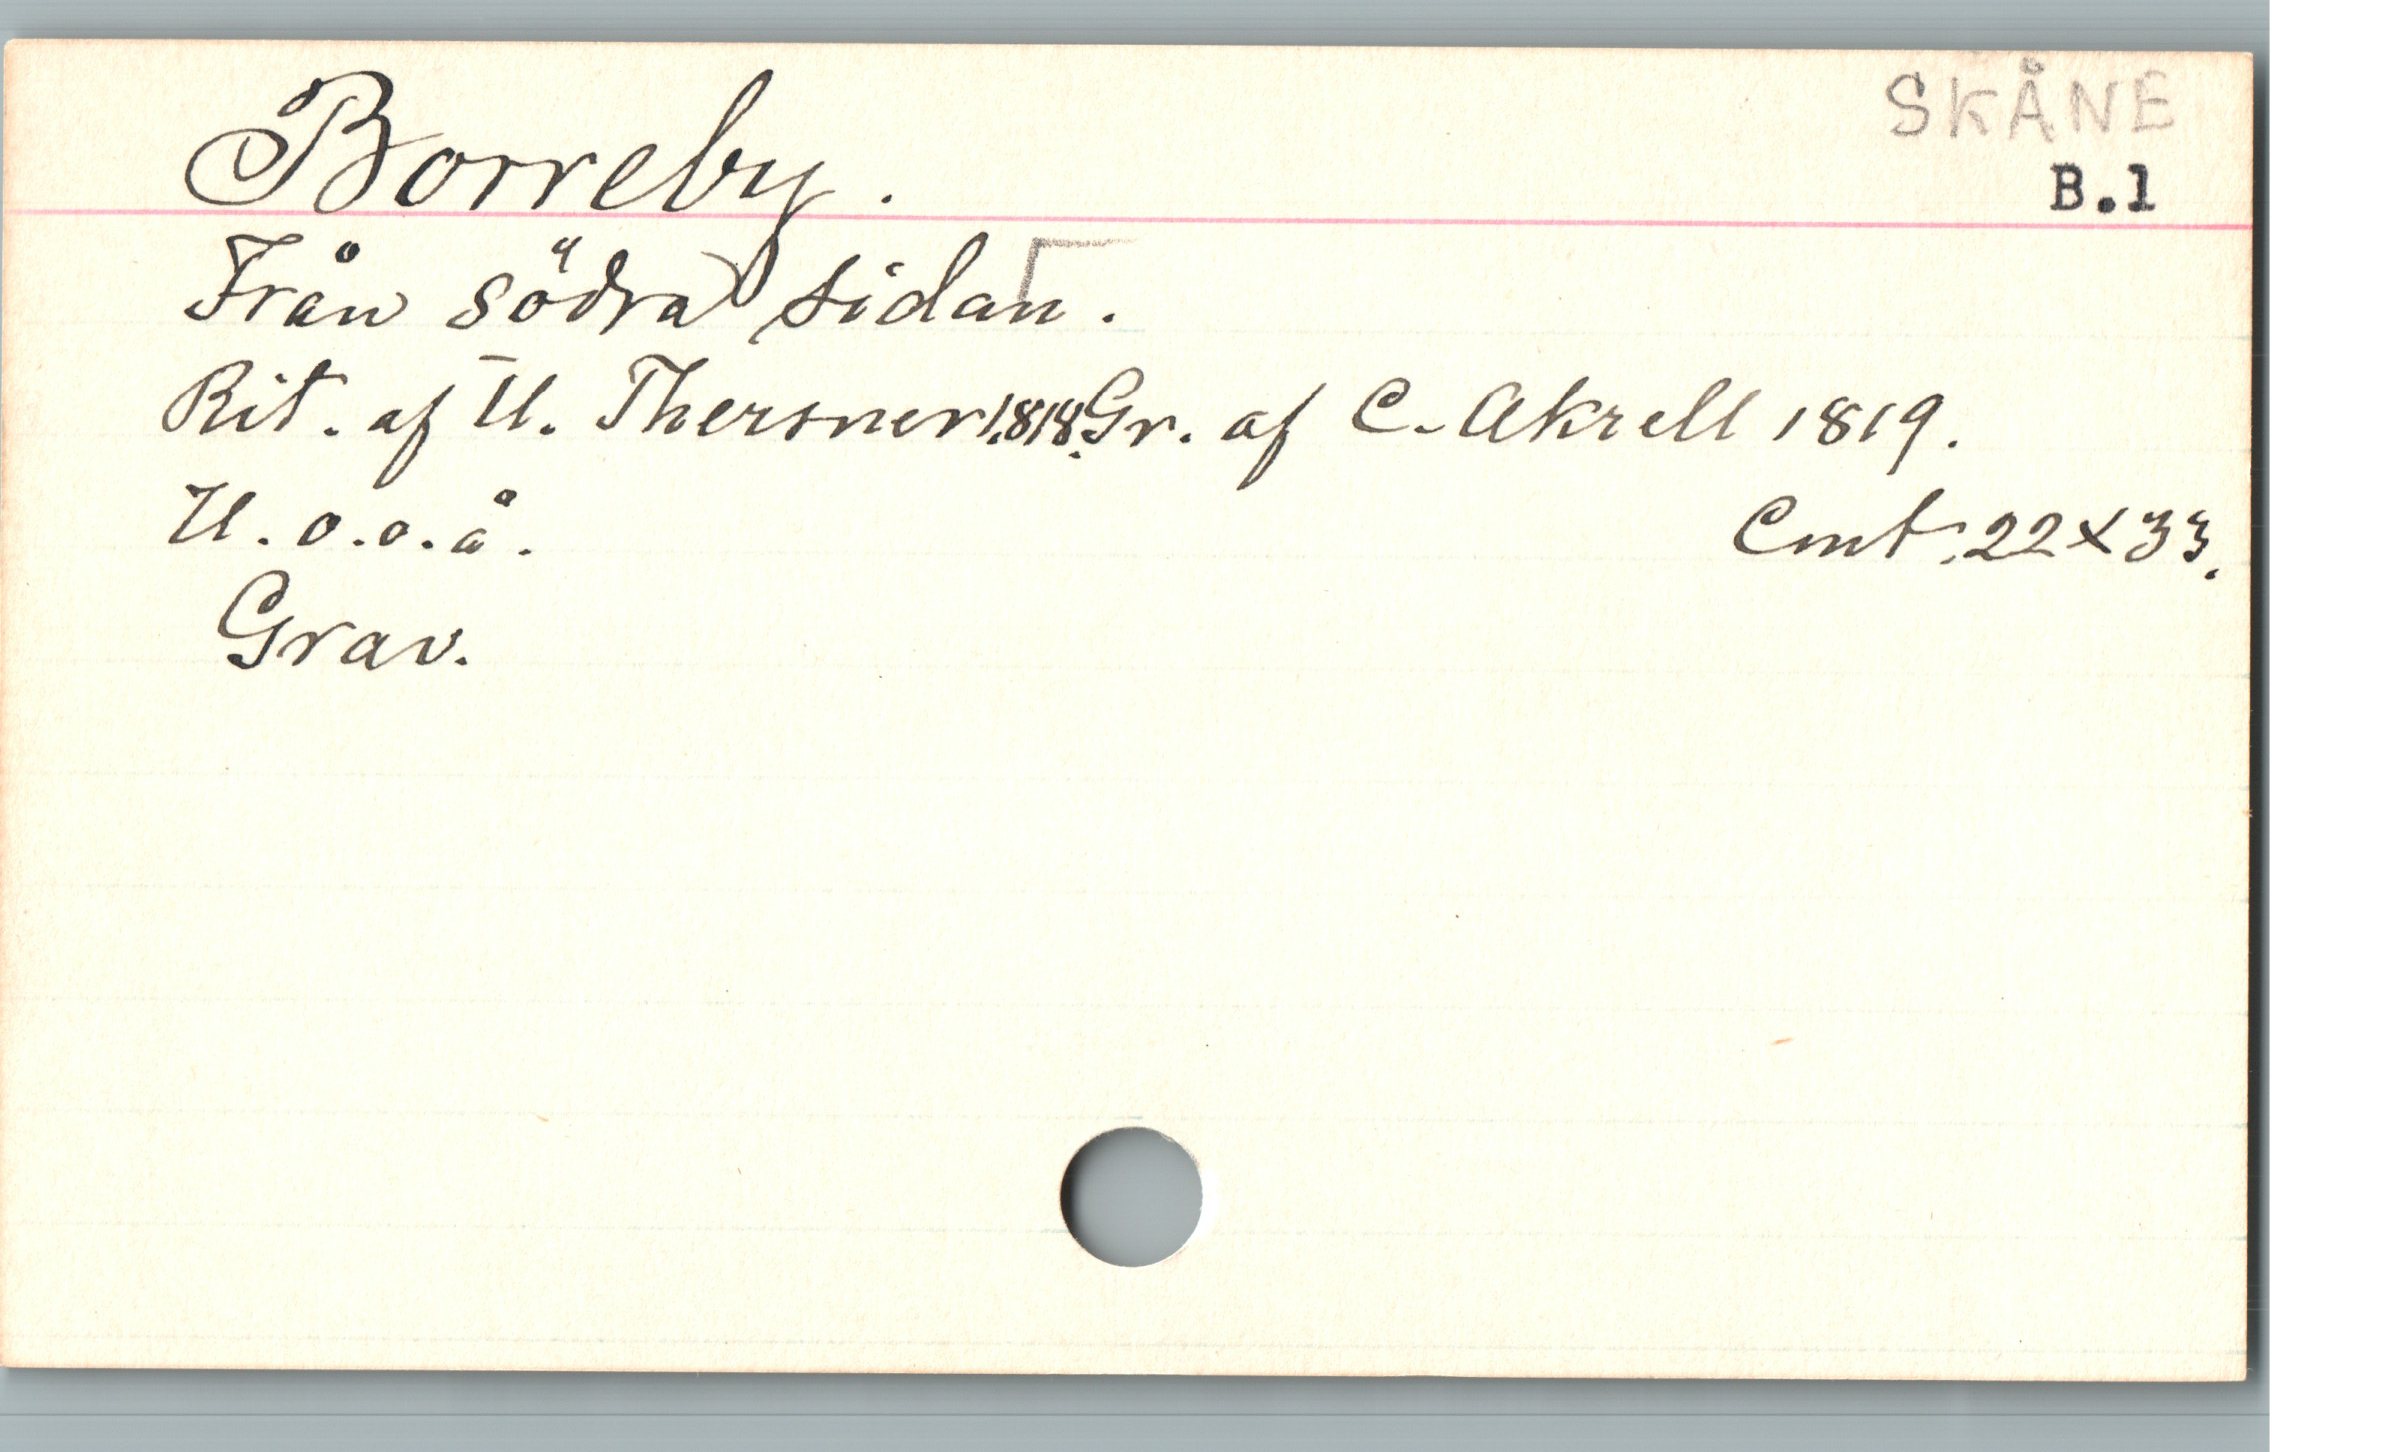 SKÅNE
Borreby.
B.1
Från södra sidan.
Rit. af U. Thersner 1818. Gr. af C. Akrell 1819.
U. o. o. å.
Cmt. 22 x 33.
Grav.